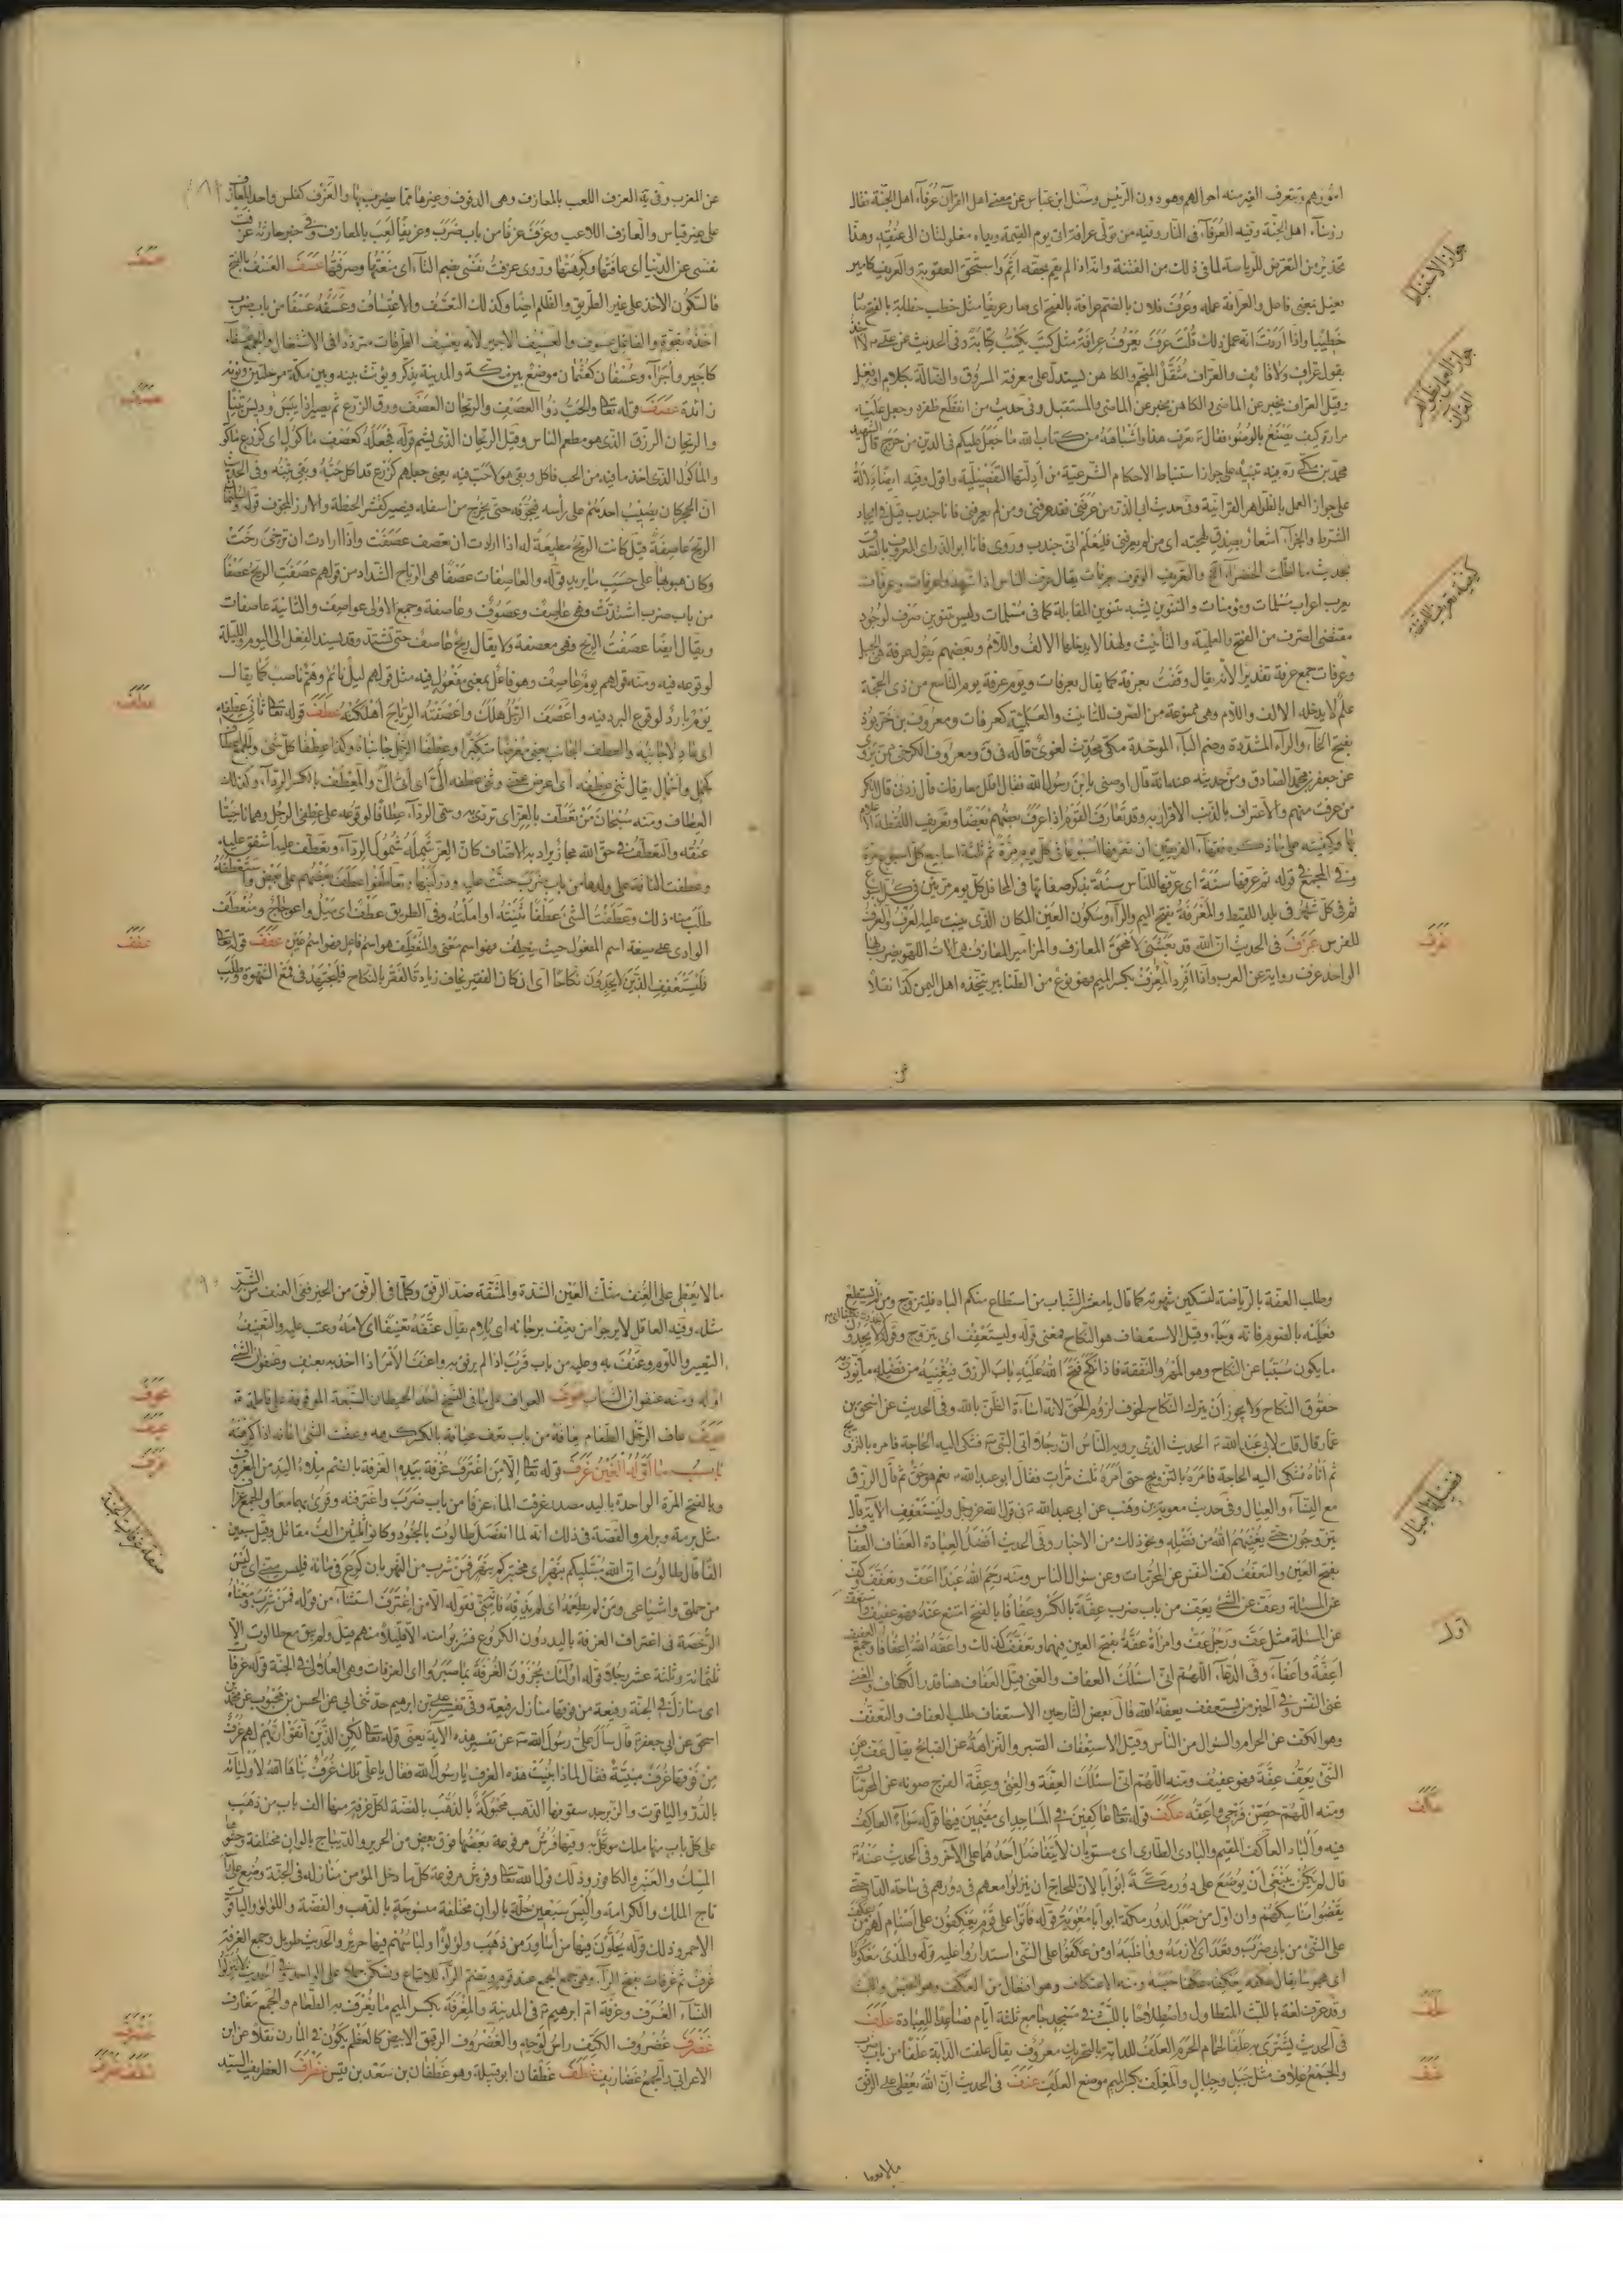 امورهم ويتعرف الغير منه احوالهم وهو دون الرئيس وسئل ابن عباس عن معنى اهل القرآن عرفاء اهل الجنة فقال
رؤساء اهل الجنة وفيه العرفاء في النار وفيه من تولى عرافة اتى يوم القيمة ويداه مغلولتان الى عنقه وهذا
تحذير من التعرض للرياسة لما في ذلك من الفتنة وانه اذا لم يقم بحقه اثم واستحق العقوبة والعريف كامير
بمعنى فاعل والعرافة عمله وعرف فلان بالضم عرافة بالفتح اى صار عريفا مثل خطب خطابة بالفتح صار
خطيبا واذا اردت انه عمل ذلك قلت عرف يعرف عرافة مثل كتب يكتب كتابة وفي الحديث عن على لا آخذ
بقول عراف ولا قائف والعراف مثقل المنجم والكاهن يستدل على معرفة المسروق والضالة بكلام او فعل
وقيل العراف يخبر عن الماضى والكاهن يخبر عن الماضى والمستقبل وفي حديث من انقطع ظفره وجعل عليه
مرارة كيف يصنع بالوضوء فقال تعرف هذا واشباهه من كتاب الله ما جعل عليكم في الدين من حرج قال الشهيد
محمد بن مكى ره فيه تنبيه على جواز استنباط الاحكام الشرعية من ادلتها التفصيلية واقول وفيه ايضا دلالة
على جواز العمل بالظواهر القرآنية وفي حديث ابى الذر من عرفنى فقد عرفنى ومن لم يعرفنى فانا جندب قيل في ايجاد
الشرط والجزاء اشعار بصدق لهجته اى من لم يعرفنى فليعلم انى جندب وروى فانا ابو الذر اى المعروف بالصدق
بحديث ما اظلت الخضراء الخ والتعريف الوقوف بعرفات يقال عرف الناس اذا شهدوا عرفات وعرفات
يعرب اعراب مسلمات ومؤمنات والتنوين يشبه تنوين المقابلة كما في مسلمات وليس تنوين صرف لوجود
مقتضى الصرف من الفتح والعلمية والتأنيث ولهذا لا يدخلها الالف واللام وبعضهم يقول عرفة هى الجبل
وعرفات جمع عرفة تقديرا لانه يقال وقفت بعرفة كما يقال بعرفات ويوم عرفة يوم التاسع من ذى الحجة
علم لا يدخله الالف واللام وهى ممنوعة من الصرف للتأنيث والعلمية كعرفات ومعروف بن خربوذ
بفتح الخاء والراء المشددة وضم الباء الموحدة مكى محدث لغوى قاله في ق ومعروف الكرخى ممن يروى
عن جعفر بن محمد الصادق ومن حديثه عنه انه قال اوصنى يا بن رسول الله فقال اقلل معارفك قال زدنى قال انكر
من عرفت منهم والاعتراف بالذنب الاقرار به وقد تعارف القوم اذا عرف بعضهم بعضا وتعريف اللقطة الاعلام
بها وكيفيته على ما ذكره فقهاء الفريقين ان تعرفها اسبوعا في كل يوم مرة ثم ثلثة اسابيع كل اسبوع مرة
وفي المجمع في قوله ثم عرفها سنة اى عرفها للناس سنة بذكر صفاتها في المحافل كل يوم مرتين في كل اسبوع
ثم في كل شهر في بلد اللقيط والمعرفة بفتح الميم والراء وسكون العين المكان الذى ينبت عليه العرف والعرف
للفرس عزف في الحديث ان الله قد بعثنى لامحق المعازف والمزامير المعازف هى آلات اللهو يضرب بها
الواحد عزف رواية عن العرب واذا افرد المعزف بكسر الميم فهو نوع من الطنابير يتخذه اهل اليمن كذا نقلا
جواز الاستنباط
جواز العمل بظواهر القرآن
كيفية تعريف اللقطة
عزف
عن
عن المغرب وفي ية العزف اللعب بالمعازف وهى الدفوف وغيرها مما يضرب بها والعزف كفلس واحد المعازف
على غير قياس والعازف اللاعب وعزف عزفا من باب ضرب وعزيفا لعب بالمعازف وفي خبر حارثة عزفت
نفسى عن الدنيا اى عافتها وكرهتها وروى عزفت نفسى بضم التاء اى منعتها وصرفتها عسف العسف بالفتح
فالسكون الاخذ على غير الطريق والظلم ايضا وكذلك التعسف والاعتساف وعسفه عسفا من باب ضرب
اخذه بقوة والفاعل عسوف والعسيف الاجير لانه يعسف الطرقات مترددا في الاشتغال والجمع عسفاء
كاجير واجراء وعسفان كعثمان موضع بين مكة والمدينة يذكر ويؤنث بينه وبين مكة مرحلتين ونونه
زائدة عصف قوله تعالى والحب ذو العصف والريحان العصف ورق الزرع ثم يصير اذا يبس ودرس تبنا
والريحان الرزق الذى هو مطعم الناس وقيل الريحان الذى يشم قوله فجعلهم كعصف مأكول اى كزرع مأكول
والمأكول الذى اخذ ما فيه من الحب فاكل وبقى هو لا حب فيه يعنى جعلهم كزرع قد اكل حبه وبقى تبنه وفي الحديث
ان الحجر كان يصيب احدهم على رأسه فيجوفه حتى يخرج من اسفله فيصير كقشر الحنطة والارز المجوف قوله ولسليمان
الريح عاصفة قيل كانت الريح مطيعة له اذا ارادت ان تعصف عصفت واذا ارادت ان ترخى رخت
وكان هبوبها على حسب ما يريد قوله والعاصفات عصفا هى الرياح الشداد من قولهم عصفت الريح عصفا
من باب ضرب اشتدت وهى عاصف وعصوف وعاصفة وجمع الاولى عواصف والثانية عاصفات
ويقال ايضا عصفت الريح وهى معصفة ولا يقال ريح عاصف حتى تشتد وقد يسند الفعل الى اليوم والليلة
لوقوعه فيه ومنه قولهم يوم عاصف وهو فاعل بمعنى مفعول فيه مثل قولهم ليل نائم وهم ناصب كما يقال
يوم بارد لوقوع البرد فيه واعصف الرجل هلك واعصفته الرياح اهلكته عطف قوله تعالى ثانى عطفه
اى عادلا جانبه والعطف الجانب يعنى معرضا متكبرا وعطفا الرجل جانباه وكذا عطفا كل شىء والجمع اعطاف
كحمل واحمال يقال ثنى عطفه اى اعرض عنى وثنى عطفه الى اى ال والمعطف بالكسر الرداء وكذلك
العطاف ومنه سبحان من تعطف بالعز اى تردى به وسمى الرداء عطافا لوقوعه على عطفى الرجل وهما ناحيتا
عنقه والتعطف في حق الله مجاز يراد به الاتصاف كان العز شمله شمول الرداء وتعطف عليه اشفق عليه
وعطفت الناقة على ولدها من باب ضرب حنت عليه ودر لبنها وتعاطفوا عطف بعضهم على بعض واستعطفه
طلب منه ذلك وعطفت الشىء عطفا ثنيته او املته وفي الطريق عطف اى ميل واعوجاج ومنعطف
الوادى على صيغة اسم المفعول حيث ينعطف فهو اسم معنى والمنعطف هو اسم فاعل فهو اسم عين عفف قوله تعالى
فليستعفف الذين لا يجدون نكاحا اى ان كان الفقير يخاف زيادة الفقر بالنكاح فليجتهد في قمع الشهوة وطلب
عسف
عصف
عطف
عفف
وطلب العفة بالرياضة لتسكين شهوته كما قال يا معشر الشباب من استطاع منكم الباه فليتزوج ومن لم يستطع
فعليه بالصوم فانه وجاء وقيل الاستعفاف هو النكاح فمعنى قوله وليستعفف اى يتزوج وقوله لا يجدون
ما يكون سببا عن النكاح وهو المهر والنفقة فاذا نكح فتح الله عليه باب الرزق فيغنيه من فضله ما يؤدى به
حقوق النكاح ولا يجوز ان يترك النكاح لخوف لزوم الحق لانه اساءة الظن بالله وفي الحديث عن اسحق بن
عمار قال قلت لابى عبد الله الحديث الذى يرويه الناس ان رجلا اتى النبى فشكى اليه الحاجة فامره بالتزويج
ثم اتاه فشكى اليه الحاجة فامره بالتزويج حتى امره ثلث مرات فقال ابو عبد الله نعم هو حق ثم قال الرزق
مع النساء والعيال وفي حديث معوية بن وهب عن ابى عبد الله في قول الله عز وجل وليستعفف الآية قال
يتزوجون حتى يغنيهم الله من فضله ونحو ذلك من الاخبار وفي الحديث افضل العبادة العفاف العفاف
بفتح العين والتعفف كف النفس عن المحرمات وعن سؤال الناس ومنه رحم الله عبدا عف وتعفف وكف
عن المسئلة وعف عن الشىء يعف من باب ضرب عفة بالكسر وعفافا بالفتح امتنع عنه فهو عفيف واستعف
عن المسئلة مثل عف ورجل عف وامرأة عفة بفتح العين فيهما وتعفف كذلك واعفه الله اعفافا وجمع العفيف
اعفة واعفاء وفي الدعاء اللهم انى اسئلك العفاف والغنى قيل العفاف هنا قدر الكفاف والغنى
غنى النفس وفي الخبر من يستعفف يعفه الله قال بعض الشارحين الاستعفاف طلب العفاف والتعفف
وهو الكف عن الحرام والسؤال من الناس وقيل الاستعفاف الصبر والنزاهة عن القبائح يقال عف عن
الشىء يعف عفة فهو عفيف ومنه اللهم انى اسئلك العفة والغنى وعفة الفرج صونه عن المحرمات
ومنه اللهم حصن فرجى واعفه عكف قوله تعالى عاكفين في المساجد اى مقيمين فيها قوله سواء العاكف
فيه والباد العاكف المقيم والبادى الطارى اى مستويان لا يتفاضل احدهما على الآخر وفي الحديث عنه
قال لم يكن ينبغى ان يوضع على دور مكة ابوابا لان للحاج ان ينزلوا معهم في دورهم في ساحة الدار حتى
يقضوا مناسكهم وان اول من جعل لدور مكة ابوابا معوية قوله فاتوا على قوم يعكفون على اصنام لهم من عكف
على الشىء من بابى ضرب وقعد اى لازمه وواظبه او من عكفوا على الشىء استداروا عليه قوله والهدى معكوفا
اى محبوسا يقال عكفه يعكفه عكفا حبسه ومنه الاعتكاف وهو افتعال من العكف وهو الحبس واللبث
وقد عرف لغة باللبث المتطاول واصطلاحا باللبث في مسجد جامع ثلثة ايام فصاعدا للعبادة علف
في الحديث يشترى به علفا لحمام الحرم العلف للدابة بالتحريك معروف يقال علفت الدابة علفا من باب ضرب
والجمع علاف مثل جبل وجبال والمعلف بكسر الميم موضع العلف عنف في الحديث ان الله يعطى على الرفق
فضيلة العيال
عكف
علف
عنف
ما لا يعطى على العنف مثلث العين الشدة والمشقة ضد الرفق وكلما في الرفق من الخير ففى العنف من الشر
مثله وفيه العاقل لا يرجوا من يعنف برجائه اى يلام يقال عنفه تعنيفا اى لامه وعتب عليه والتعنيف
التعيير واللوم وعنف به وعليه من باب قرب اذا لم يرفق به واعتنف الامر اذا اخذه بعنف وعنفوان الشىء
اوله ومنه عنفوان الشباب عوف العواف على ما في النسخ احد الحيطان السبعة الموقوفة على فاطمة
عيف عاف الرجل الطعام يعافه من باب تعب عيافة بالكسر كرهه وعفت الشىء اعافه اذا كرهته
باب ما اوله الغين غرف قوله تعالى الا من اغترف غرفة بيده الغرفة بالضم ملأ اليد من المغروف
وبالفتح المرة الواحدة باليد مصدر غرفت الماء غرفا من باب ضرب واغترفته وقرئ بهما معا والجمع غراف
مثل برمة وبرام والقصة في ذلك انه لما انفصل طالوت بالجنود وكانوا ثلثين الف مقاتل وقيل سبعين
الفا قال طالوت ان الله مبتليكم بنهر اى مختبركم بنهر فمن شرب من النهر بان كرع في مائه فليس منى اى ليس
من جملتى واشياعى ومن لم يطعمه اى لم يذقه فانه منى فقوله الا من اغترف استثناء من قوله فمن شرب ومعناه
الرخصة في اغتراف الغرفة باليد دون الكروع فشربوا منه الا قليلا منهم قيل ولم يبق مع طالوت الا
ثلثمائة وثلثة عشر رجلا قوله اولئك يجزون الغرفة بما صبروا اى الغرفات وهى العلالى في الجنة قوله غرفا
اى منازل في الجنة رفيعة من فوقها منازل رفيعة وفي تفسير على بن ابرهيم حدثنى ابى عن الحسن بن محبوب عن محمد بن
اسحق عن ابى جعفر قال سأل على رسول الله عن تفسير هذه الآية يعنى قوله تعالى لكن الذين اتقوا ربهم لهم غرف
من فوقها غرف مبنية فقال لماذا بنيت هذه الغرف يا رسول الله فقال يا على تلك غرف بناها الله لاوليائه
بالدر والياقوت والزبرجد سقوفها الذهب محبوكة بالفضة لكل غرفة منها الف باب من ذهب
على كل باب منها ملك موكل به وفيها فرش مرفوعة بعضها فوق بعض من الحرير والديباج بالوان مختلفة وحشوها
المسك والعنبر والكافور وذلك قول الله تعالى وفرش مرفوعة كلما دخل المؤمن منازله في الجنة وضع عليه
تاج الملك والكرامة والبس سبعين حلة بالوان مختلفة منسوجة بالذهب والفضة واللؤلؤ والياقوت
الاحمر وذلك قوله يحلون فيها من اساور من ذهب ولؤلؤا ولباسهم فيها حرير والحديث طويل وجمع الغرفة
غرف ثم غرفات بفتح الراء وهى جمع الجمع عند قوم وتضم الراء للاتباع وتسكن حملا على الواحد وفي الحديث لا تنزلوا
النساء الغرف وغرفة ام ابرهيم في المدينة والمغرفة بكسر الميم ما يغرف به الطعام والجمع مغارف
غضرف غضروف الكتف رأس لوحه والغضروف الرقيق الابيض كالعظم يكون في المارن نقلا عن ابن
الاعرابى والجمع غضاريف غطف غطفان ابو قبيلة وهو غطفان بن سعد بن قيس غطرف الغطريف السيد
عوف
عيف
غرف
صفة غرفات الجنة
غضرف
غطف غطرف
ما لا يعطى